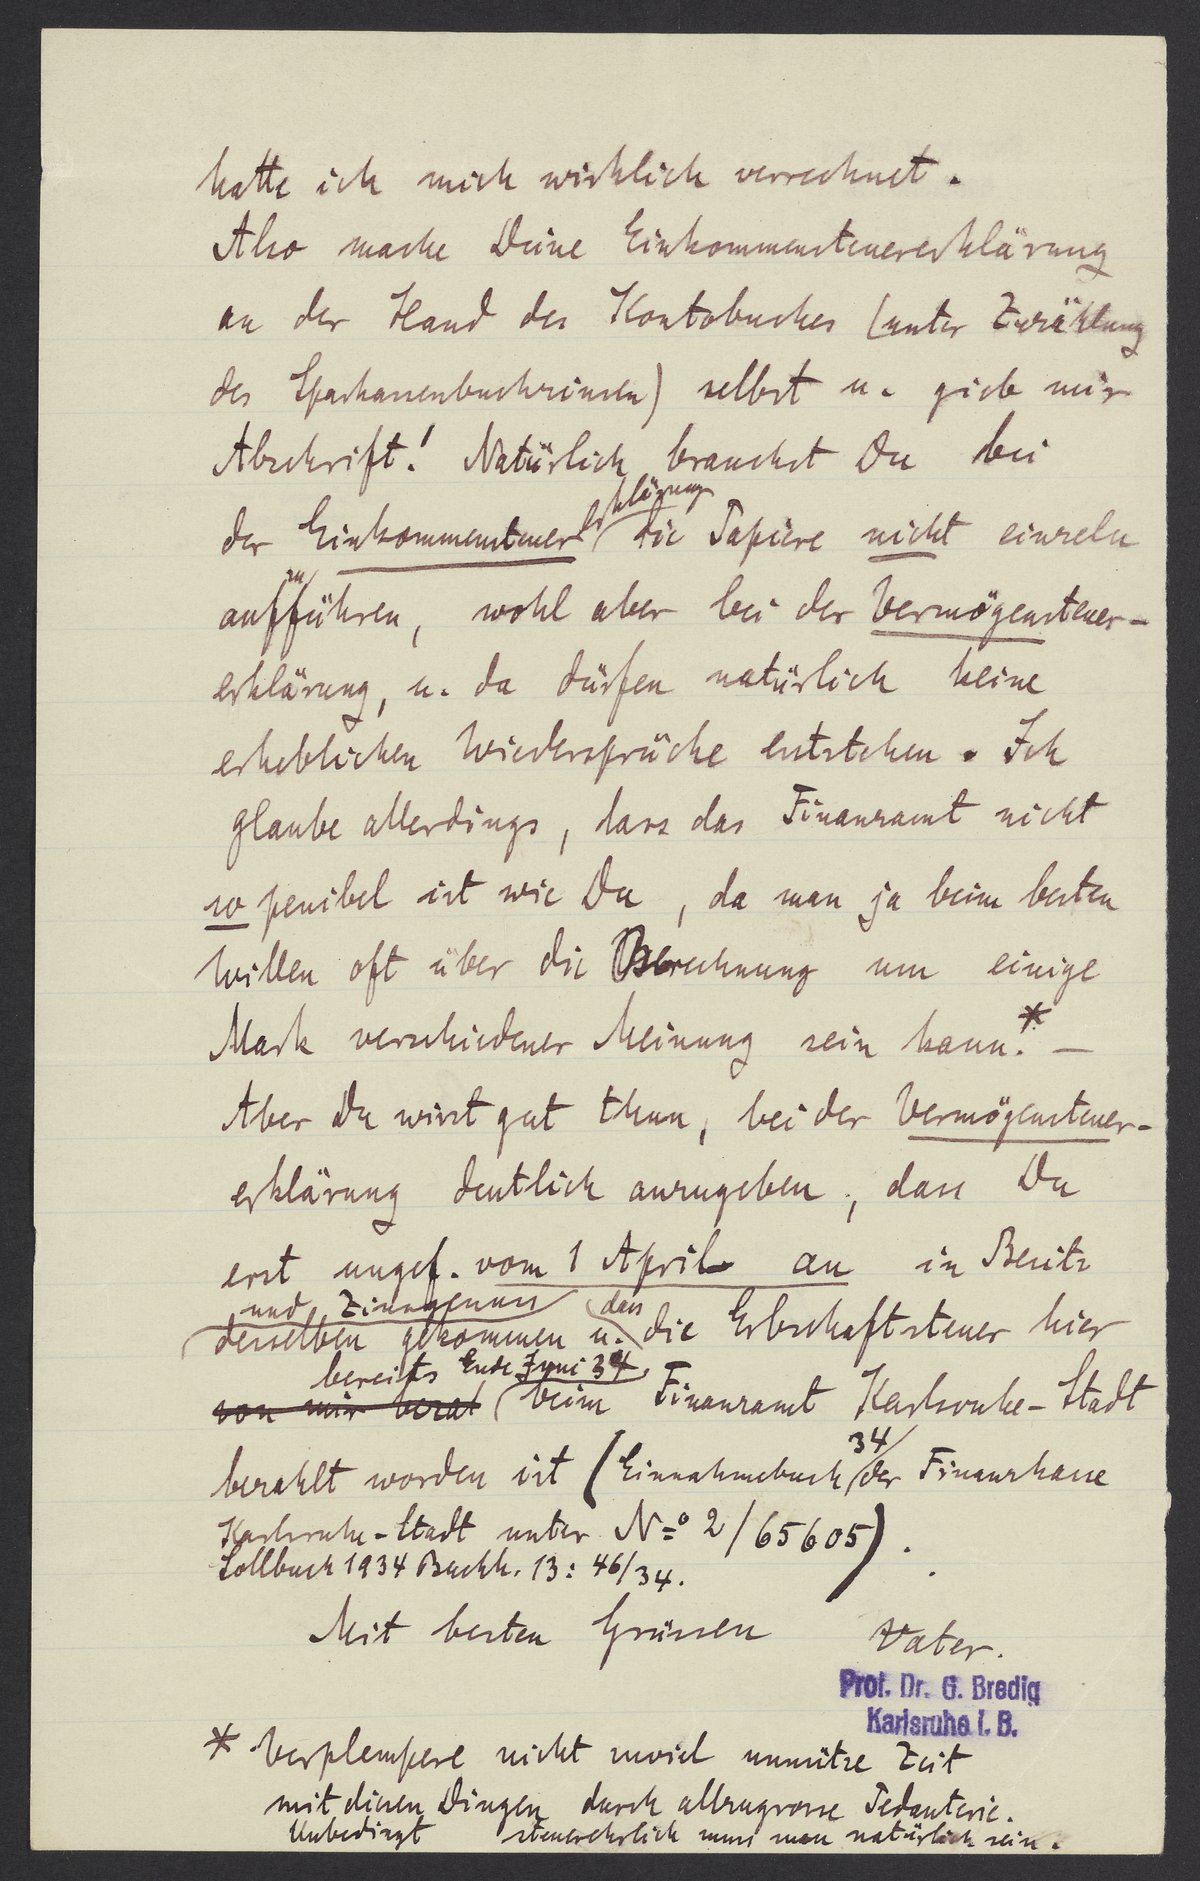 hatte ich mich wirklich verrechnet.
Also mache Deine Einkommensteuererklärung
an der Hand des Kontobuches (unter Zuzählung
des Sparkassenbuchzinsen) selbst u. gieb mir
Abschrift! Natürlich brauchst Du bei
der Einkommensteuererklärung die Papiere nicht einzeln
aufzuführen, wohl aber bei der Vermögensteuer-
erklärung, u. da dürfen natürlich keine
erheblichen Wiedersprüche entstehen. Ich
glaube allerdings, dass das Finanzamt nicht
so penibel ist wie Du, da man ja beim besten
Willen oft über die Berechnung um einige
Mark verschiedener Meinung sein kann.* —
Aber Du wirst gut thun, bei der Vermögensteuer-
erklärung deutlich anzugeben, dass Du
erst ungef. vom 1 April an in Besitz
und Zinsgenuss
desselben gekommen u. dass die Erbschaftsteuer hier
bereits Ende Juni 34
von mir bezal beim Finanzamt Karlsruhe-Stadt
bezahlt worden ist (Einnahmebuch 34 der Finanzkasse
Karlsruhe-Stadt unter No 2/65605).
Sollbuch 1934 Buchh. 13: 46/34.
Mit besten Grüssen Vater.
Prof. Dr. G. Bredig
Karlsruhe i. B.
* Verplempere nicht zuviel unnütze Zeit
mit diesen Dingen durch allzugrosse Pedanterie.
Unbedingt steuerehrlich muss man natürlich sein.